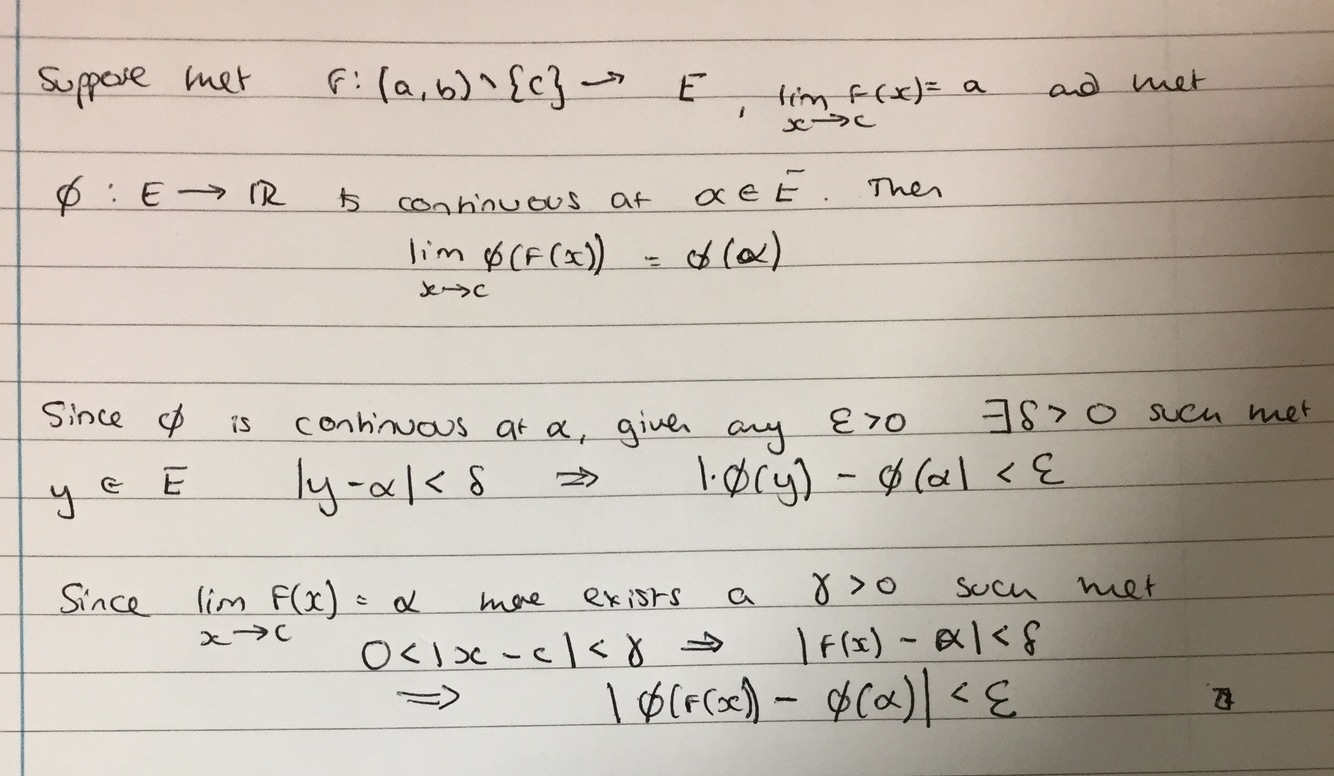 Suppose that F: (a,b)∖{c} → E, lim F(x) = a and that
x→c
φ : E → ℝ is continuous at α ∈ E. Then
lim φ(F(x)) = φ(α)
x→c
Since φ is continuous at α, given any ε>0 ∃δ>0 such that
y ∈ E |y-α| < δ ⇒ |φ(y) - φ(α| < ε
Since lim F(x) = α there exists a γ>0 such that
x→c
0<|x-c|<γ ⇒ |F(x) - α| < δ
⇒ |φ(F(x)) - φ(α)| < ε